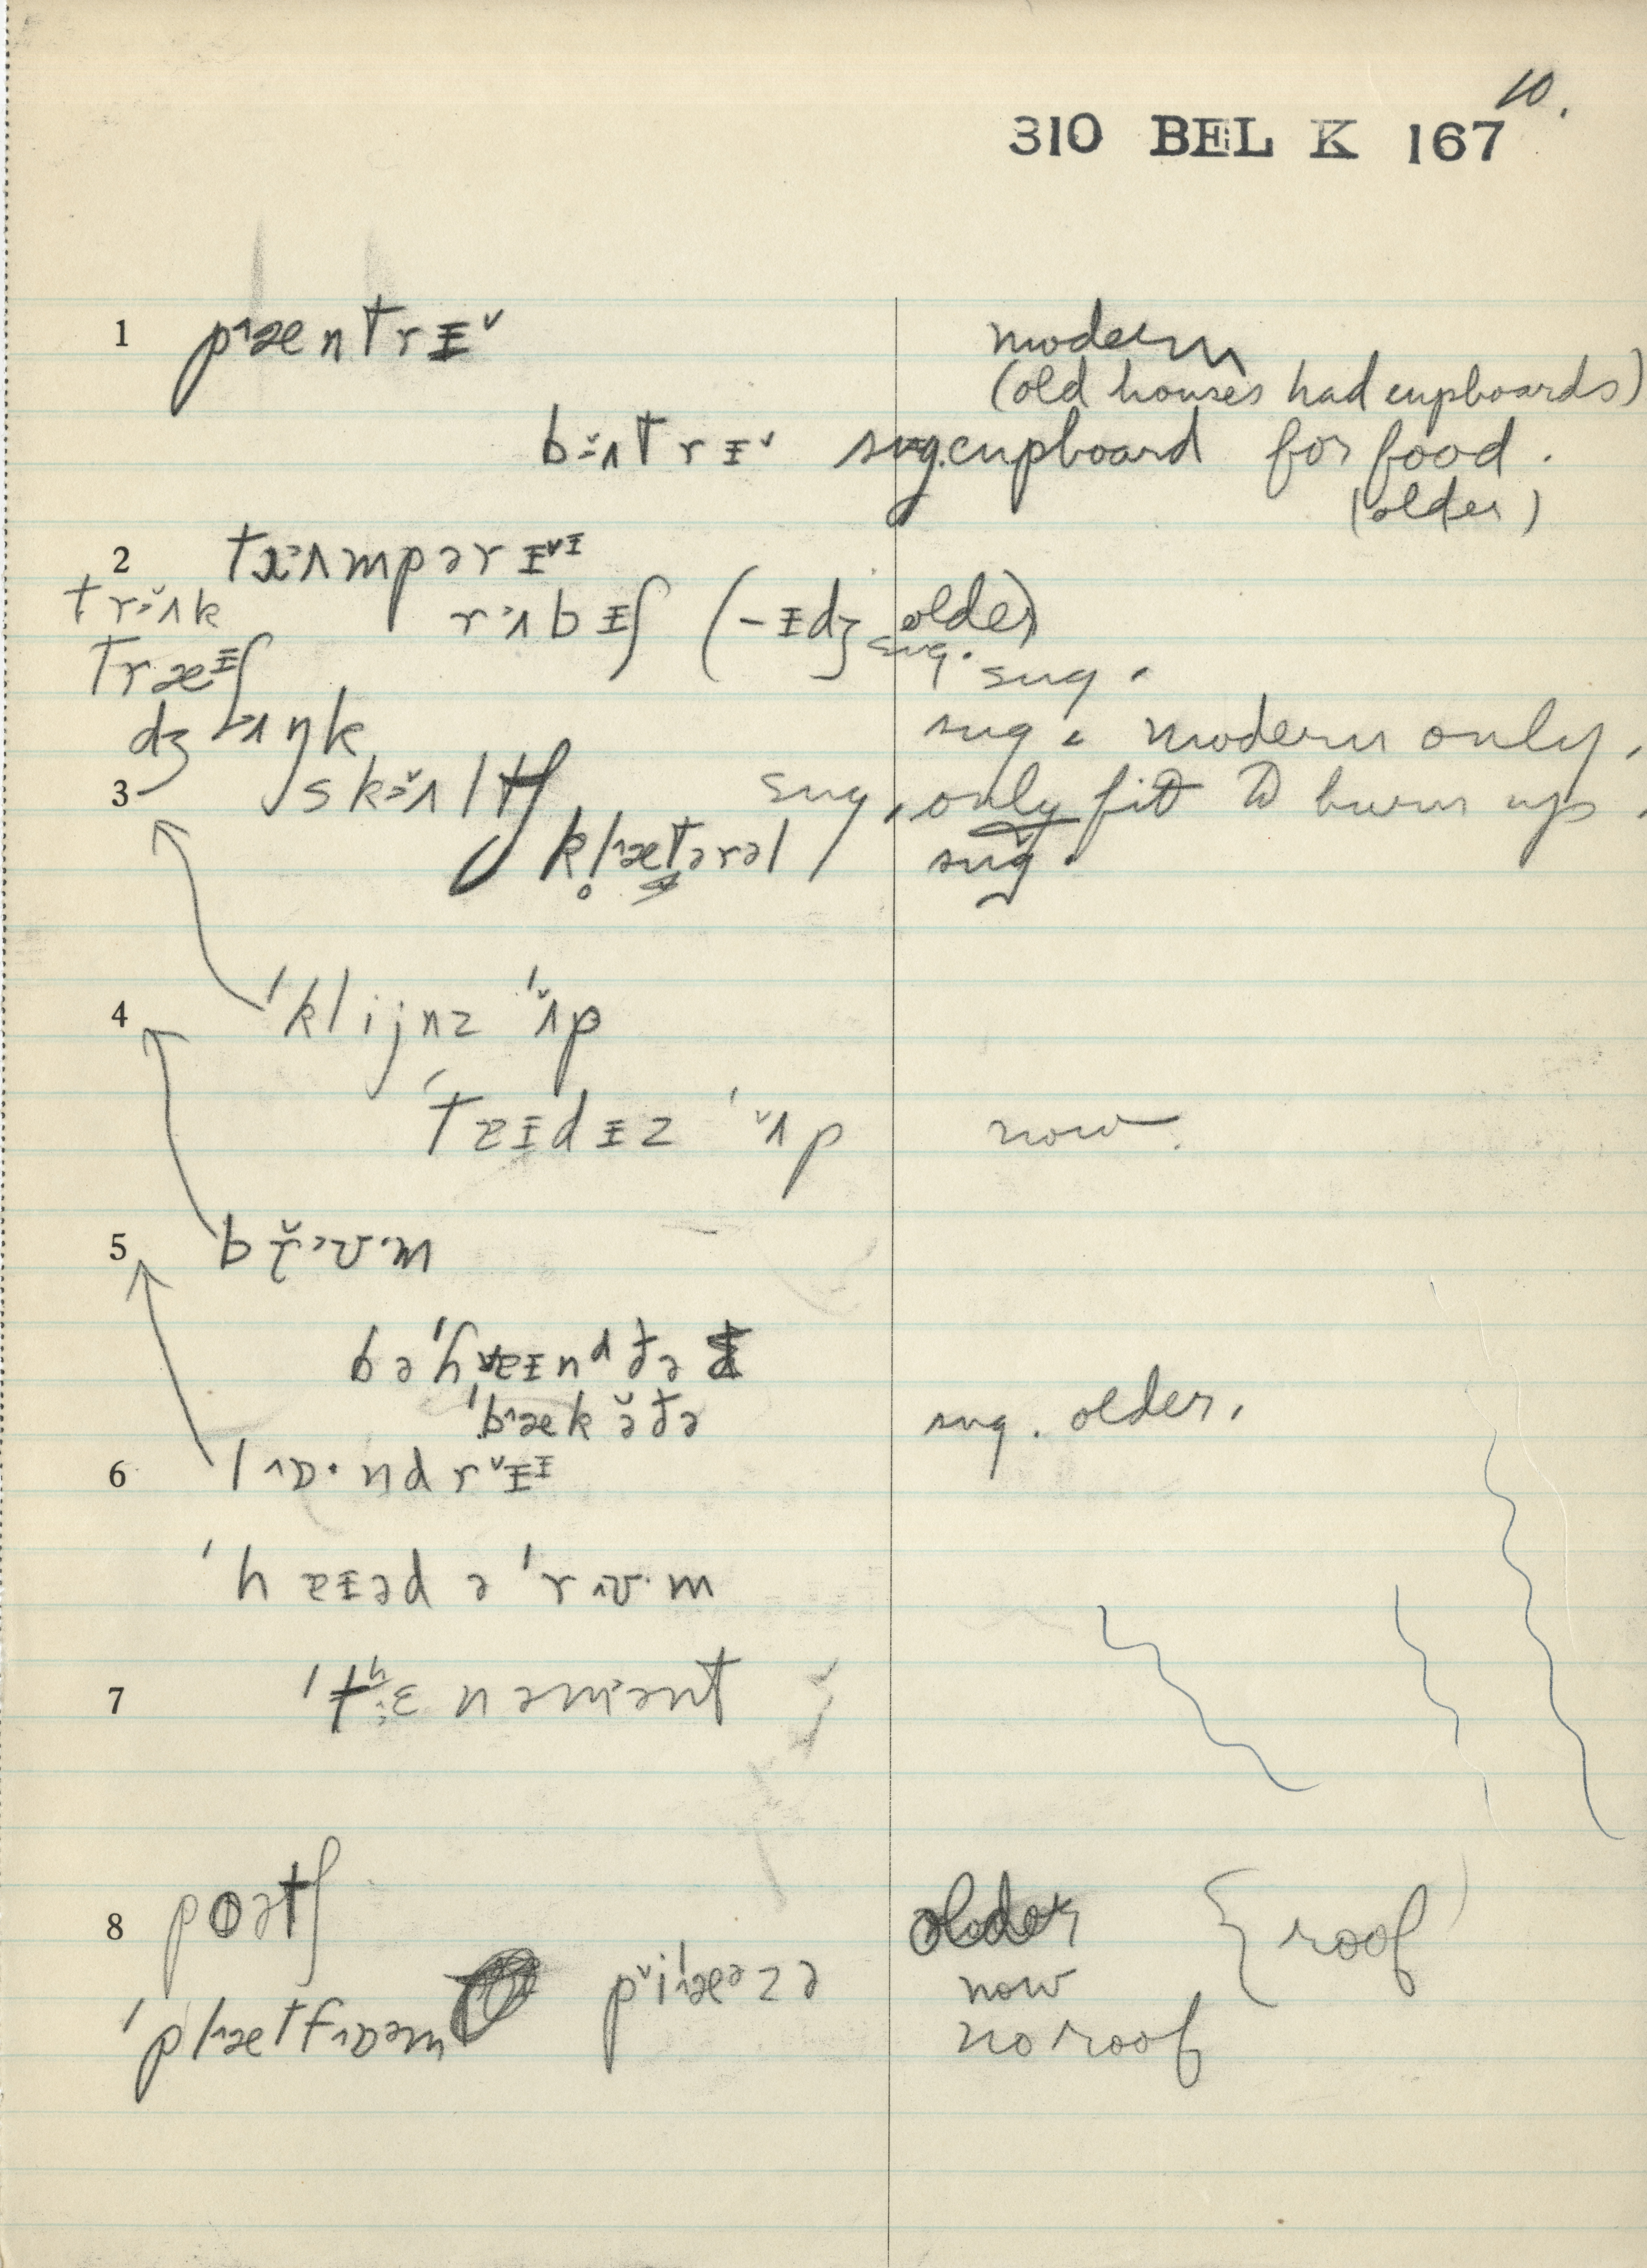 10.
310 BEL K 167
1 pæntrɪ̵ˇ modern
(old houses had cupboards)
bɜˇʌtrɪ̵ˇ sug. cupboard for food.
(older)
2 tɜʌmpərɪ̵ˇɪ̵
trɜˇʌk rɜʌbɪ̵ʃ (-ɪ̵dʒ older)
sug.
træɪ̵ʃ sug.
dʒɜʌŋk sug. modern only.
3 skɜˇʌltʃ sug. only fit to burn up.
kl̥ætərəl sug.
4 'klijnz 'ʌˇp
'tɐɪ̵dɪ̵z 'ˇʌp now.
5 brˇʊm
bə'hɐɪ̵nᵈ ðə
'bækə̆ðə sug. older.
6 lɒ·ndrˇɪ̵ɪ̵
'hɐɪ̵əd ə 'rʊ·m
7 'tʰɛnəmənt
8 poətʃ older { roof
pˇi'æᵊzə now
'plætfɒəm no roof